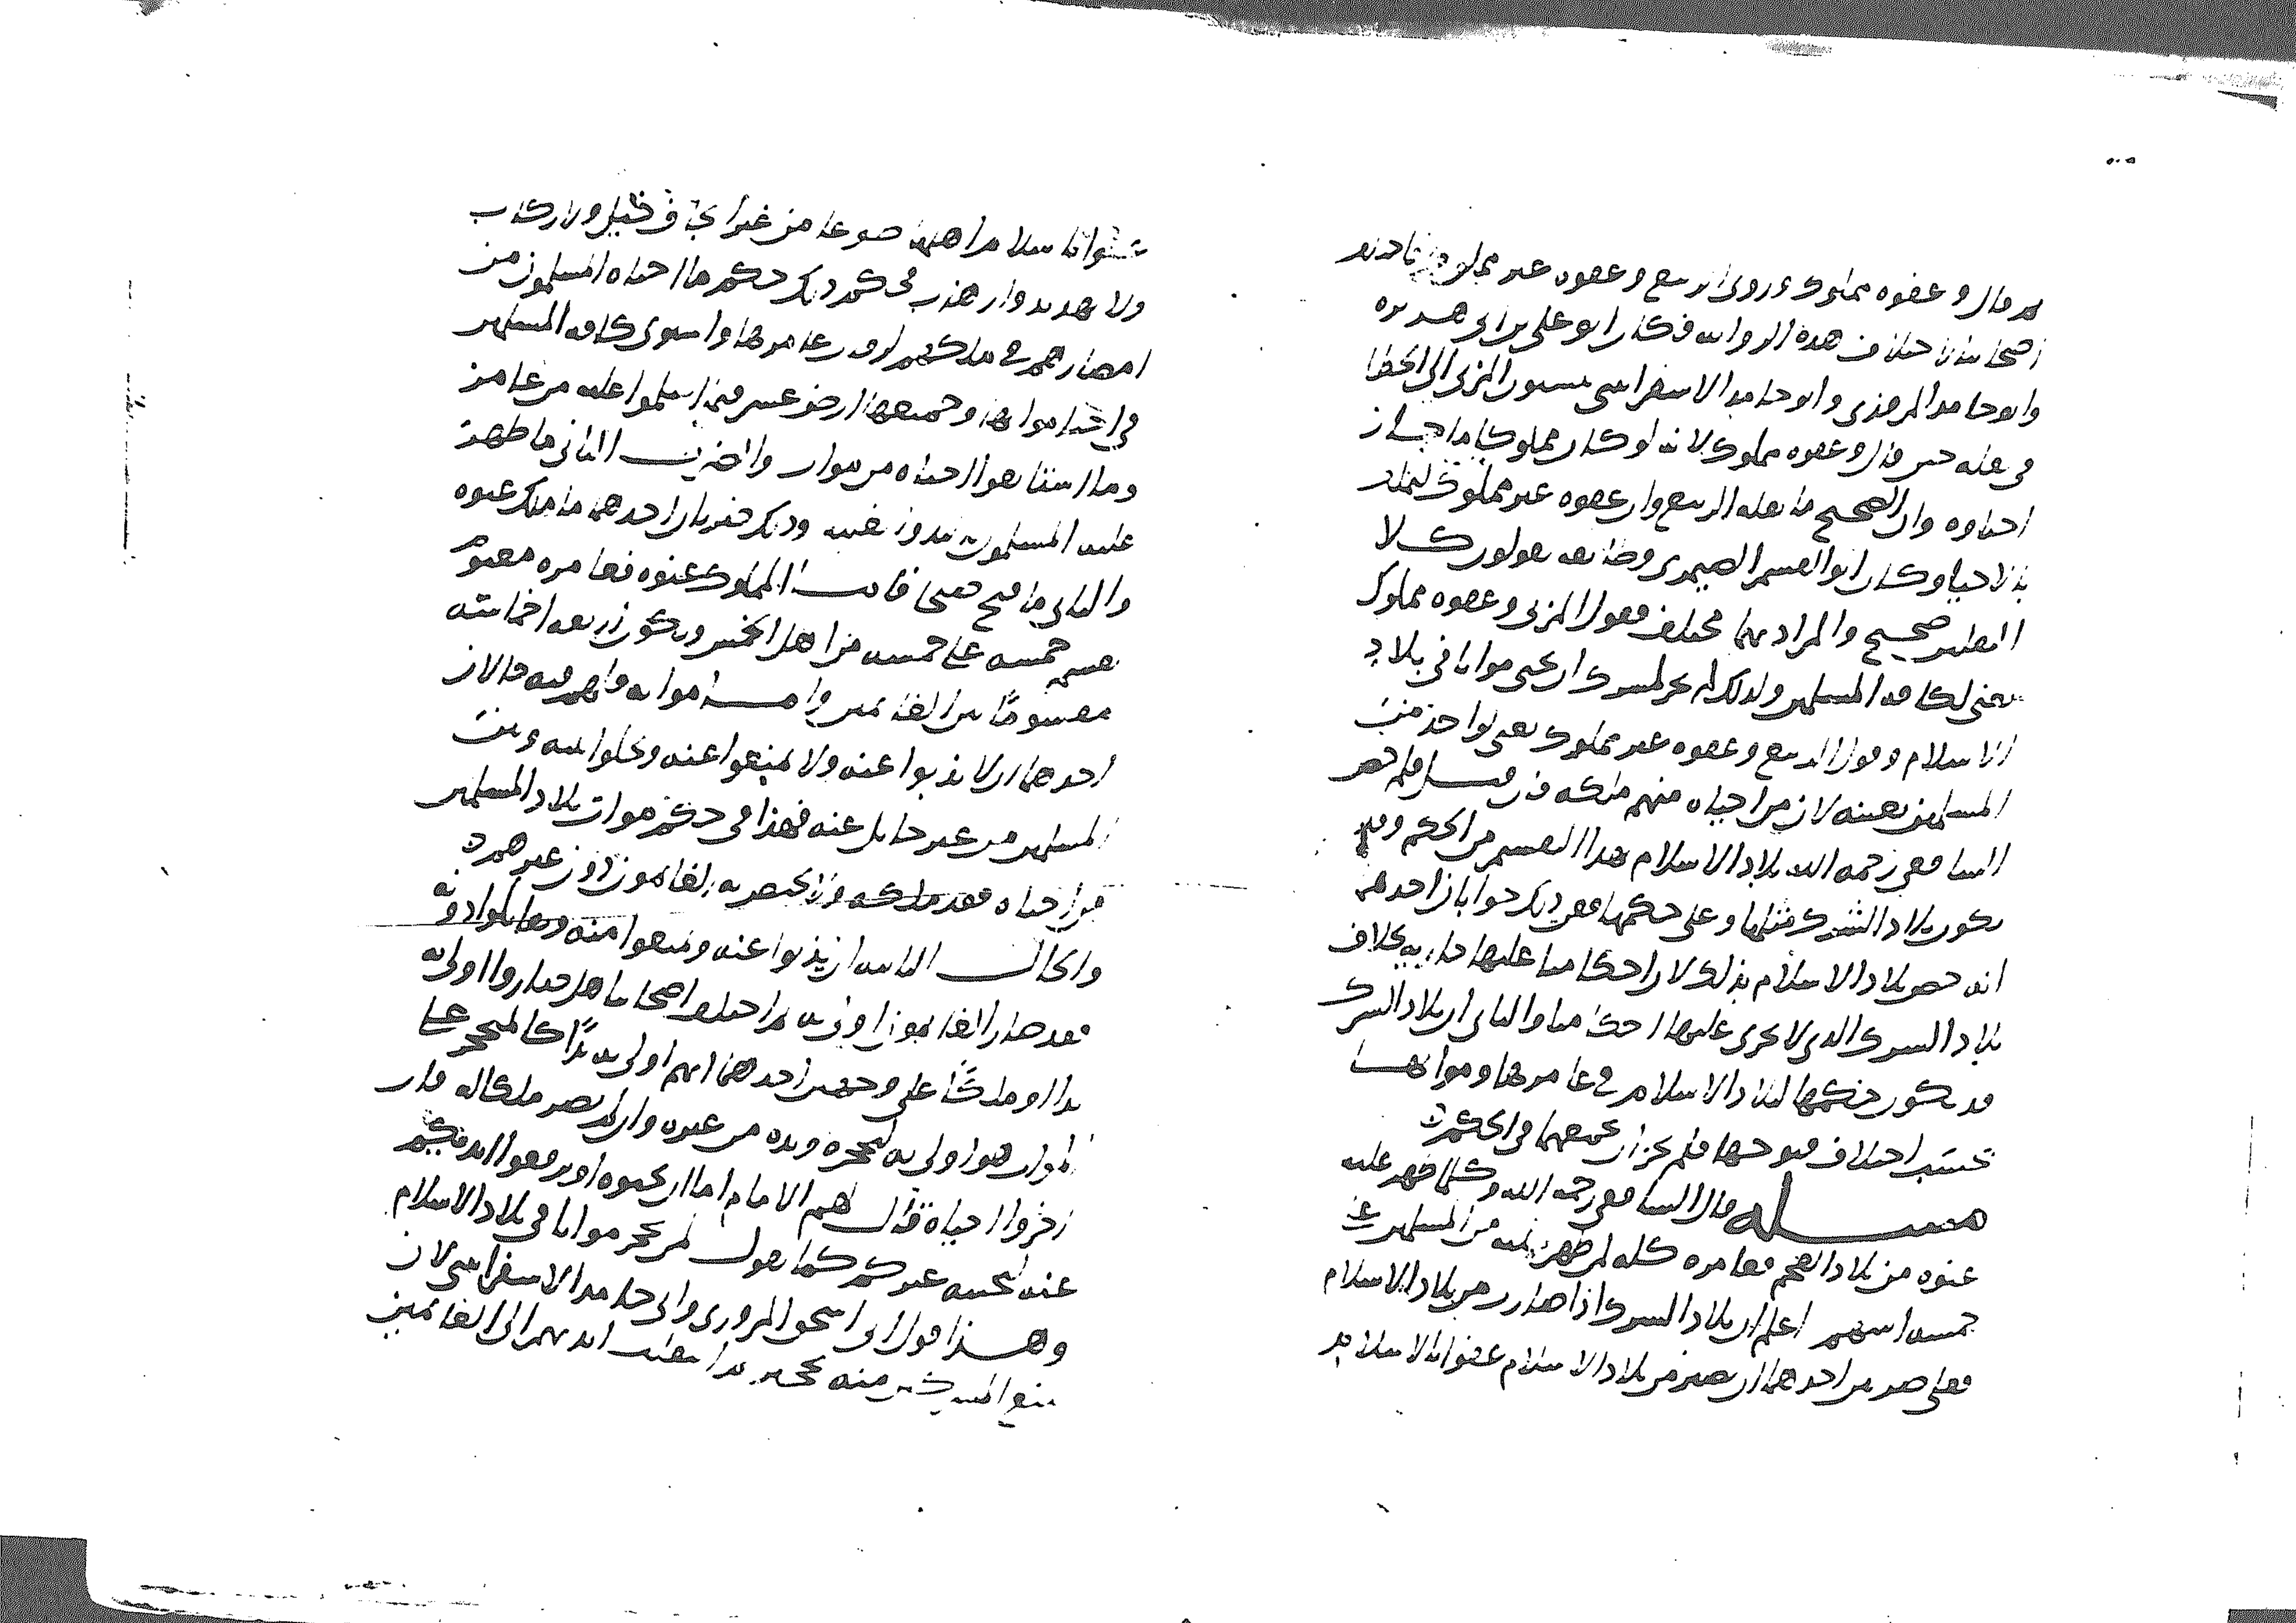 قال وعفوه مملوك وروى الربيع وعفوه غير مملوك
اصحابنا لاختلاف هذه الرواية فكان ابو علي بن ابي هريرة
وابو حامد المروذي وابو حامد الاسفرايني ينسبون المزني الى الخطا
في نقله حين قال وعفوه مملوك لانه لو كان مملوكا ما جاز
احياوه وان الصحيح ما نقله الربيع وان عفوه غير مملوك ليملك
بالاحيا وكان ابو القسم الصيمري وطايفة يقولون كلا
النقلين صحيح والمراد بهما مختلف فقول المزني وعفوه مملوك
يعني لكافة المسلمين ولذلك لم يجز لمشرك ان يحيي مواتا في بلاد
الاسلام وقول الربيع وعفوه غير مملوك يعني لواحد من
المسلمين بعينه لان من احياه منهم ملكه فان قيل فلم خص
الشافعي رحمه الله بلاد الاسلام بهذا التقسيم من الحكم وقد
تكون بلاد الشرك مثلها وعلى حكمها فعن ذلك جوابان احدهما
انه خص بلاد الاسلام بذلك لان احكامنا عليها جارية بخلاف
بلاد الشرك الذي لا تجري عليها احكامنا والثاني ان بلاد الشرك
قد يكون حكمها كبلاد الاسلام في عامرها ومواتها
بحسب اختلاف فتوحها فلم يجز ان يجمعهما في الحكم
مسله قال الشافعي رحمه الله وكلما ظهر عليه
عنوة من بلاد العجم فعامره كله لمن ظهر عليه من المسلمين على
خمسة اسهم اعلم ان بلاد الشرك اذا صارت من بلاد الاسلام
فعلى ضربين احدهما ان تصير من بلاد الاسلام عفوا بالاسلام
اهلها طوعا من غير ايجاف خيل ولا ركاب
ولا تهديد وارهاب فحكم ذلك حكم ما احياه المسلمون من
امصارهم في ملكهم لرقاب عامرها واستوى كافة المسلمين
في احيا مواتها وجميعها ارض عشر فيما اسلموا عليه من عامر
وما استانفوا احياه من موات والضرب الثاني ما ظهر
عليه المسلمون وذلك ضربان احدهما ما ملك عنوة
والثاني ما فتح صلحا فاما المملوك عنوة فعامره مغنوم
يقسم خمسه على خمسة من اهل الخمس وتكون اربعة اخماسه
مقسومًا بين الغانمين واما مواته فالارض فيه حالان
احدهما ان لا يذبوا عنه ولا يمنعوا عنه ويخلوا بينه وبين
المسلمين من غير حايل عنه فهذا في حكم موات بلاد المسلمين
من احياه فقد ملكه ولا يختص به الغانمون دون غيرهم
والحال الثانية ان يذبوا عنه ويمنعوا منه ويقاتلوا دونه
فقد صار الغانمون اولى به ثم اختلف اصحابنا هل صاروا اولى به
يدا او ملكًا على وجهين احدهما انهم اولى به يدًا كالمتحجر على
الموات هو اولى به لتحجره ويده من غيره وان لم يصر ملكا له فان
اخروا احياه قال لهم الامام اما ان تحيوه او ترفعوا ايديكم
عنه ليحييه غيركم كما يقول لمن يحجر مواتا في بلاد الاسلام
وهذا قول ابي اسحق المروزي وابي حامد الاسفرايني لان
منع المشركين منه تحجير يد انتقلت ايديهم الى الغانمين